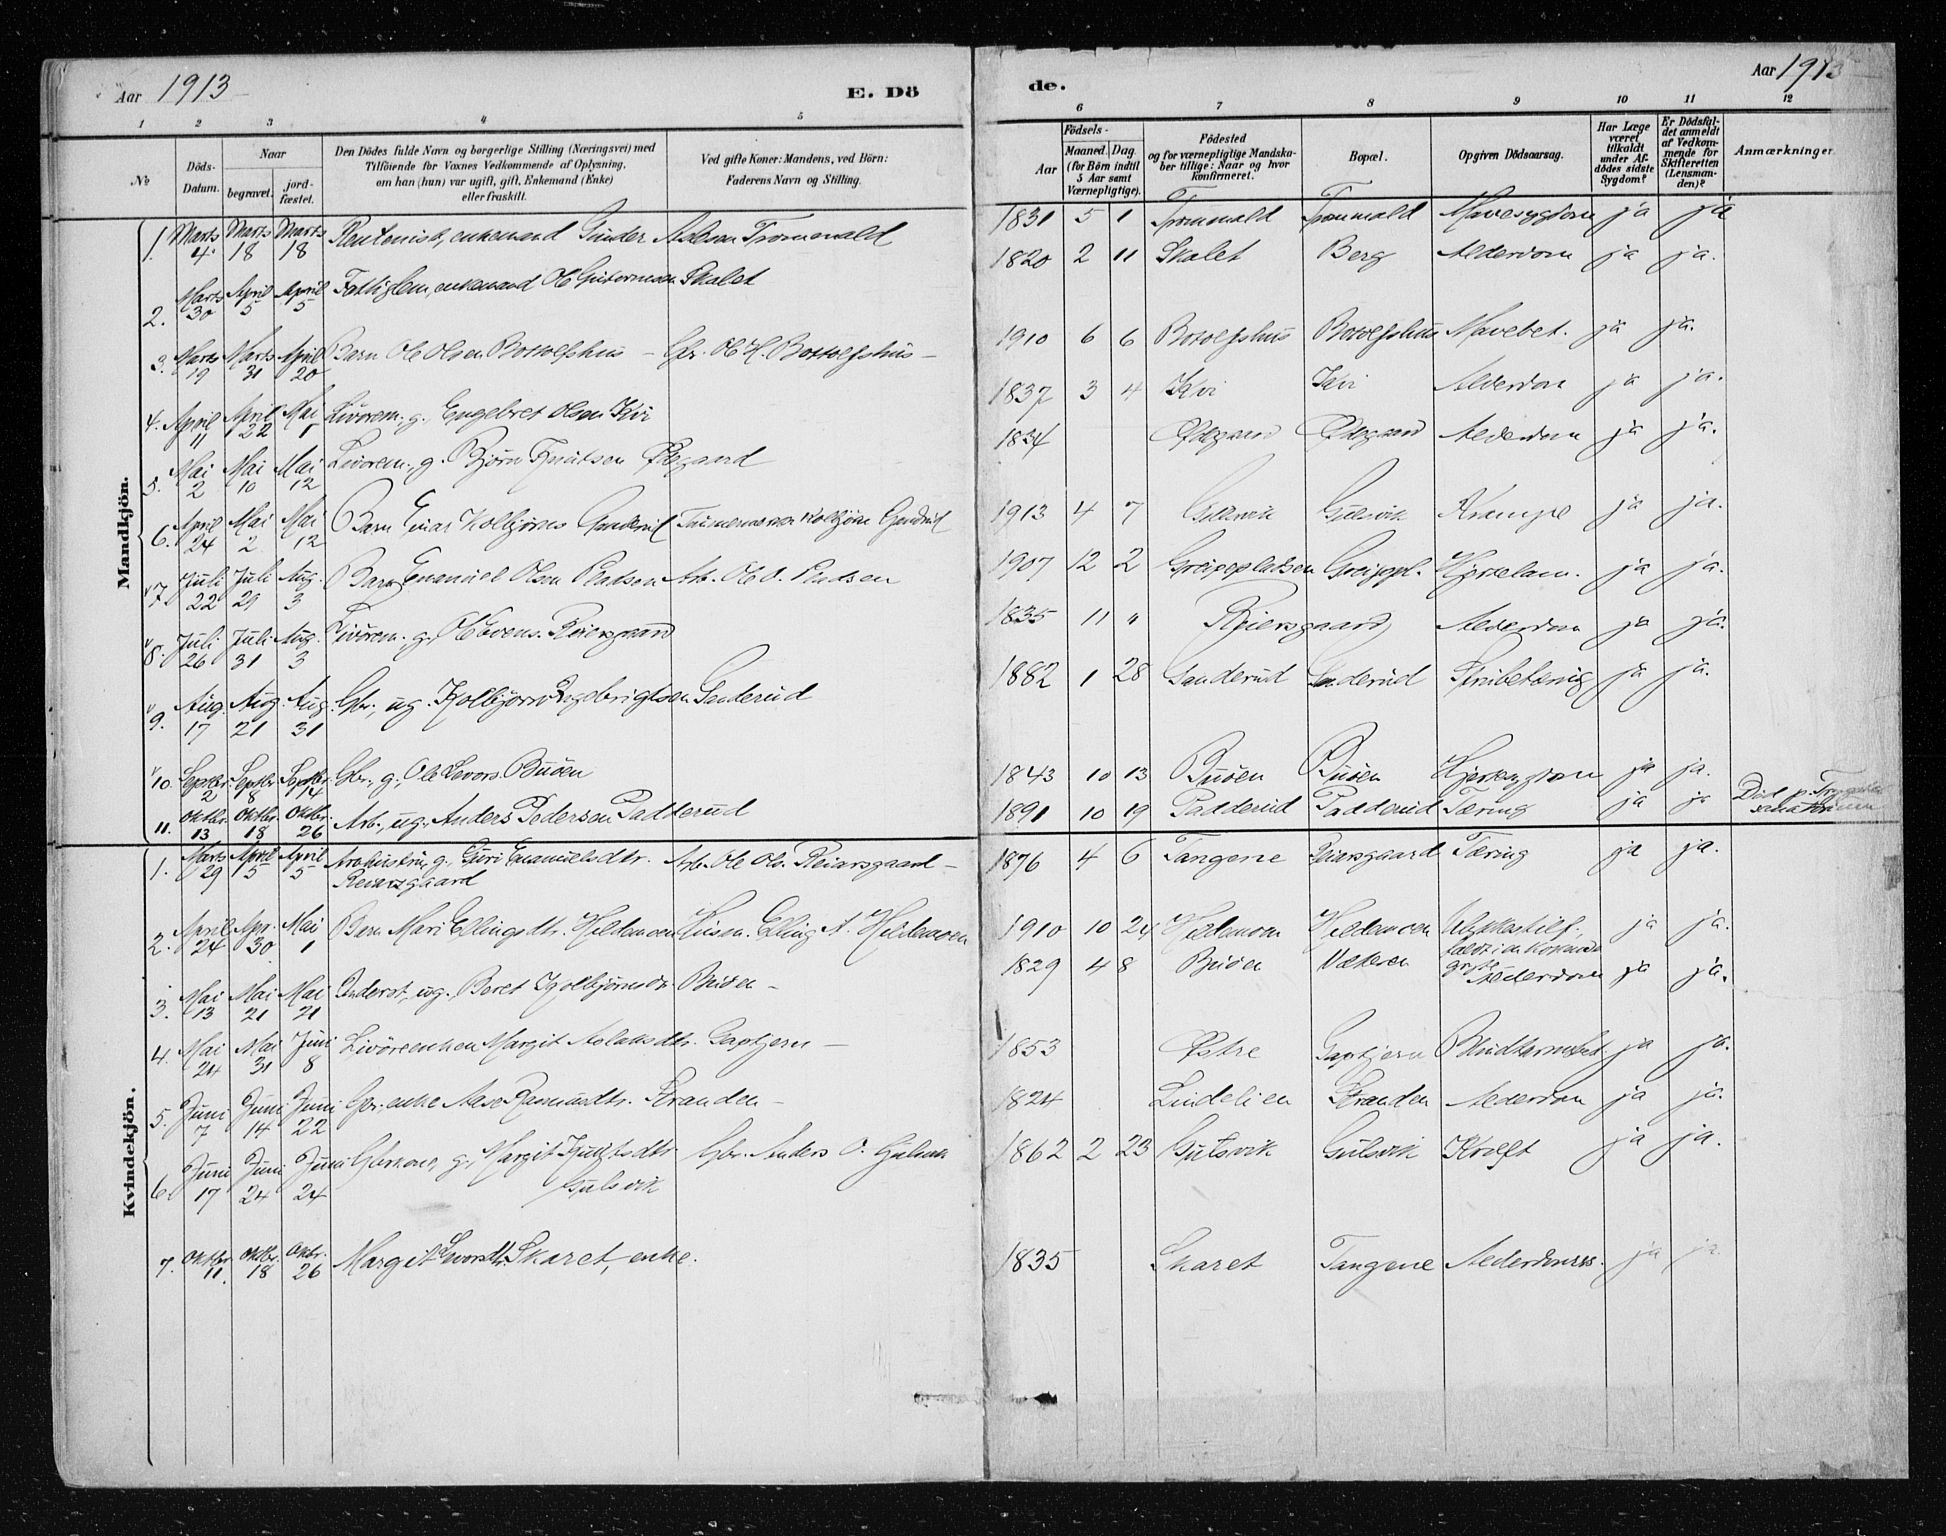 Aar 1913
E. Dö
1 2 3 4 5
№
Döds-Datum.
Naar
begravet.
jord-fæstet.
Den Dödes fulde Navn og borgerlige Stilling (Næringsvei) med
Tilföiende for Voxnes Vedkommende af Oplysning,
om han (hun) var ugift, gift, Enkemand (Enke)
eller fraskilt.
Ved gifte Koner: Mandens, ved Börn:
Faderens Navn og Stilling.
Mandkjön.
1. Marts 4. Marts 18 Marts 18 enkemand Gunder Aslesen Trommald
2. Marts 30 April 5 April 5 Fattiglem, enkemand Ole Guttormsen Skalet
3. Marts 19 Marts 31 April 20 Barn Ole Olsen Bottolfshus – Gbr. Ole H. Bottolfshus –
4. April 11 April 22 Mai 1 Livörem. g. Engebret Olsen Kvi
5. Mai 2 Mai 10 Mai 12 Livörem., g. Björn Knutsen Ödegaard
6. April 24 Mai 2 Mai 12 Barn Einar Kolbjörns. Tömmermand Kolbjörn
7. Juli 22 Juli 29 Aug. 3 Barn Emanuel Olsen Arb. Ole O.
8. Juli 26 Juli 31 Aug. 3 Livörem. g., Ole Evens. Reiersgaard
9. Aug. 17 Aug. 21 Aug. 31 Gbr., ug. Kolbjörn Engebrigtsen Sanderud
10. Septbr. 2 Septbr. 8 Septbr. 14 Gbr., g., Ole Levors. Buöen
11. Oktbr. 13 Oktbr. 18 Oktbr. 26 Arb., ug., Anders Pedersen Padderud
Kvindekjön.
1. Marts 29 April 5 April 5 g. Guri Emanuelsdtr. Arb. Ole Ols. Reiarsgaard –
Reiarsgaard
2. April 24 Apr. 30 Mai 1 Barn Mari Ellingsdtr. Hildemoen Husm. Elling A. Hildemoen
3. Mai 13 Mai 21 Mai 21 Underst., ug., Beret Kjolbjörnsdr. Buöen –
4. Mai 24 Mai 31 Juni 8 Livöreenken Margit Aslaksdtr. Gaptjern –
5. Juni 7 Juni 14 Juni 22 Gbr.enke Aase Rasmusdtr. Stranden –
6. Juni 17 Juni 24 Juni 24 Gbrkone, g., Margit Knutsdtr. Gbr. Anders O.
Gulsvik
7. Oktbr. 11. Oktbr. 18 Oktbr. 26 Margit Levorsdtr. Skaret, enke.
de.
Aar 1913
6 7 8 9 10 11 12
Födsels-
Aar
Maaned. Dag
(for Börn indtil
5 Aar samt
Værnepligtige).
Födested
og for værnepligtige Mandska-
ber tillige: Naar og hvor
konfirmeret.
Bopæl.
Opgiven Dödsaarsag.
Har Læge
været
tilkaldt
under Af-
dödes sidste
Sygdom?
Er Dödsfal-
det anmeldt
af Vedkom-
mende for
Skifteretten
(Lensman-
den)?
Anmærkninger
1831 5 1 Trommald Trommald Mavesygdom ja ja
1820 2 11 Skalet Berg Alderdom ja ja.
1910 6 6 Botolfshus Botolfshus Mavebet. ja ja.
1837 3 4 Kvi Kvi Alderdom ja ja.
1834 Ödegaard Ödegaard Alderdom ja ja.
1913 4 7 Gulsvik Gulsvik Krampe ja ja.
1907 12 2 Greipplatsen Greippl. Hjertelam. ja ja.
1835 11 " Reiersgaard Alderdom ja ja.
1882 1 28 Sanderud Sanderud ja ja.
1843 10 13 Buöen Buöen ja ja.
1891 10 19 Padderud Padderud Tæring ja ja Död p.
1876 4 6 Tangene Reiarsgaard Tæring ja ja.
1910 10 24 Hildemoen Hildemoen Ulykkestilf. ja ja.
1829 4 8 Buöen Alderdom ja ja.
1853 Östre Gaptjern ja ja.
1824 Lindelien Stranden Alderdom ja ja.
1862 2 23 Gulsvik Gulsvik Kræft ja ja.
1835 Skaret Tangene Alderdoms. ja ja